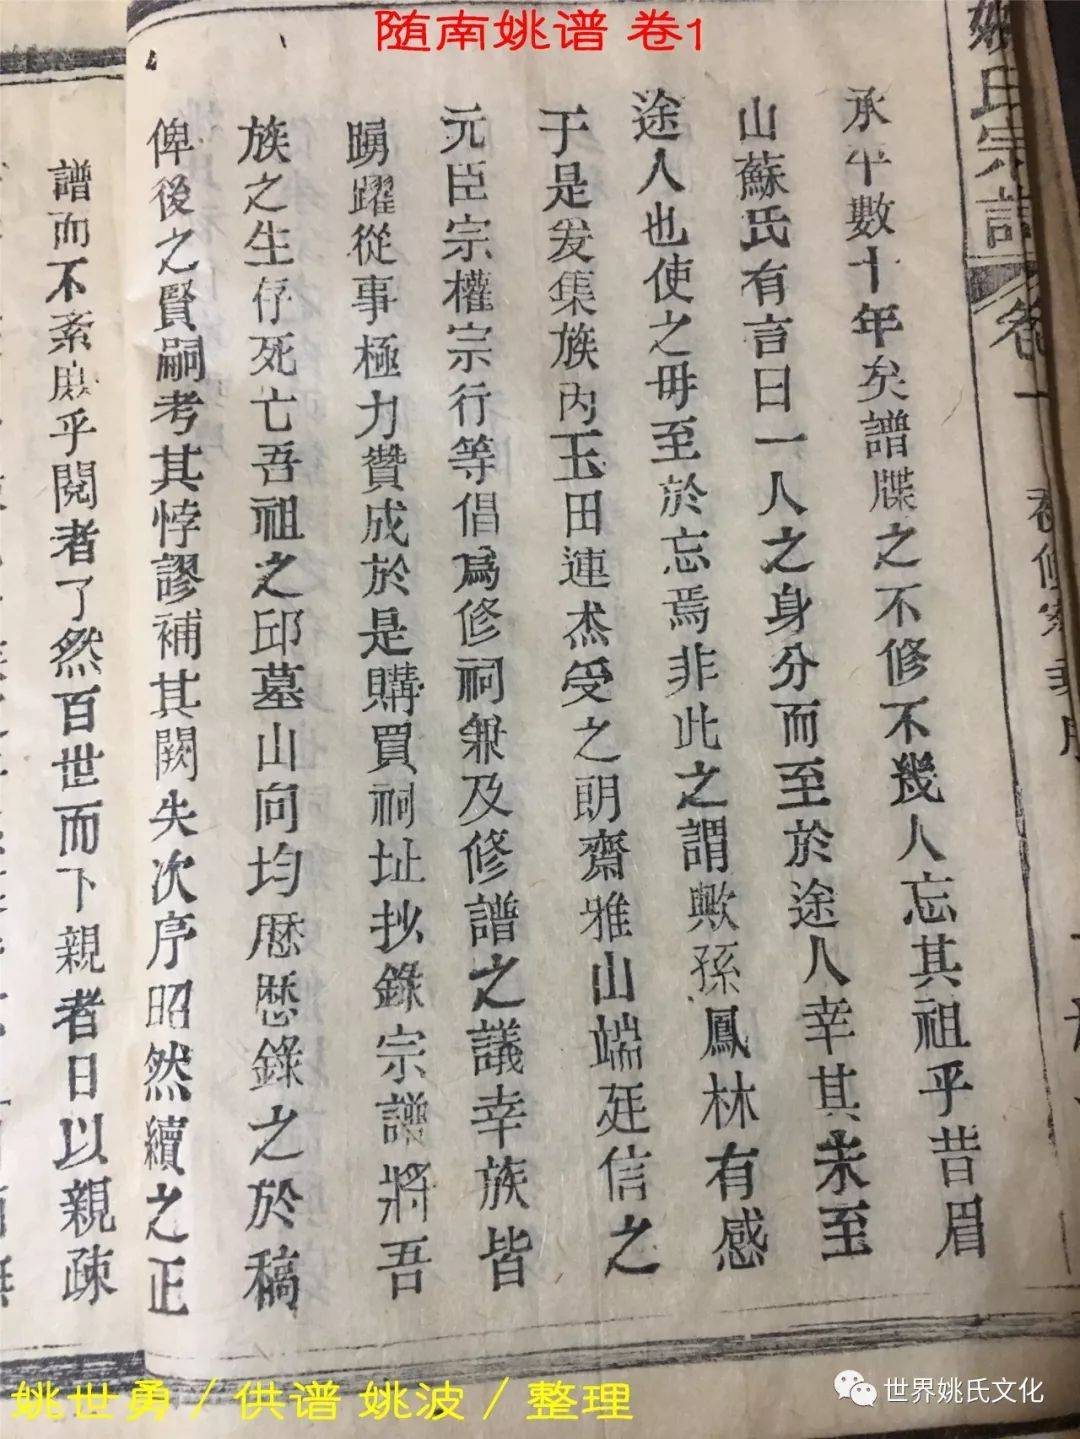 随南姚谱 卷1
姚氏宗譜 卷一
承平數十年矣譜牒之不修不幾人忘其祖乎昔眉
山蘇氏有言曰一人之身分而至於途人幸其未至
途人也使之毋至於忘焉非此之謂歟孫鳳林有感
于是爰集族內玉田連杰受之朗齋雅山端廷信之
元臣宗權宗行等倡為修祠兼及修譜之議幸族皆
踴躍從事極力贊成於是購買祠址抄錄宗譜將吾
族之生存死亡吾祖之邱墓山向均歷歷錄之於稿
俾後之賢嗣考其悖謬補其闕失次序昭然續之正
譜而不紊庶乎閱者了然百世而下親者日以親疎
姚世勇/供谱 姚波/整理
世界姚氏文化